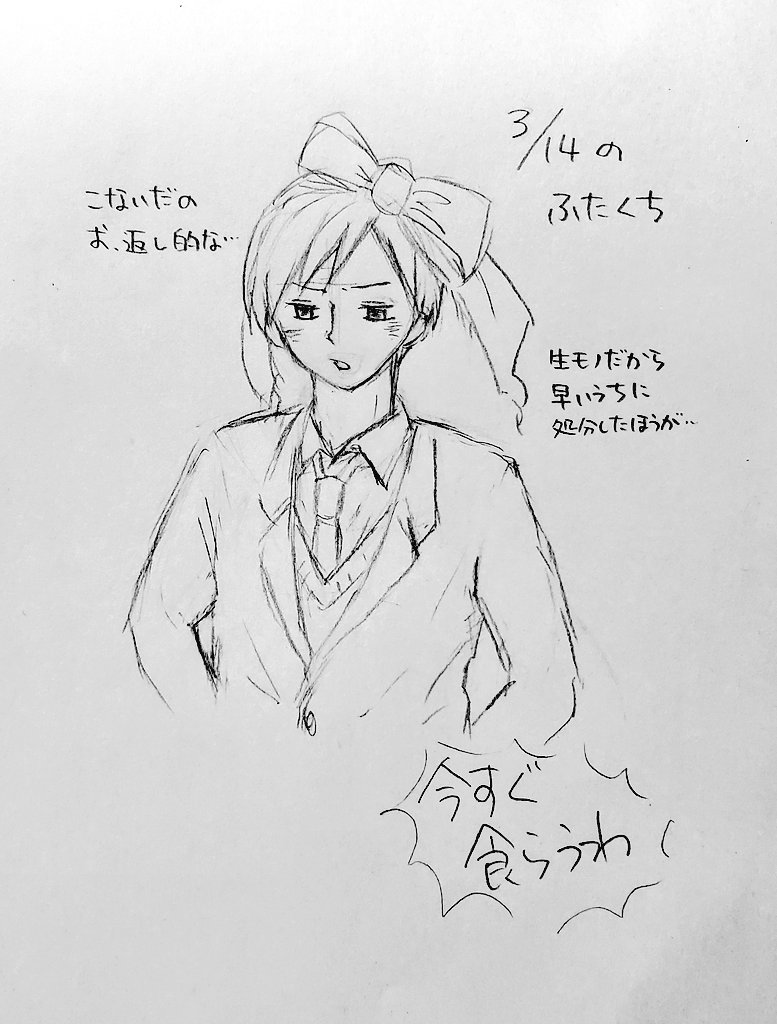 3/14の
ふたくち
こないだの
お、返し的な…
生モノだから
早いうちに
処分したほうが…
今すぐ
食らうわ